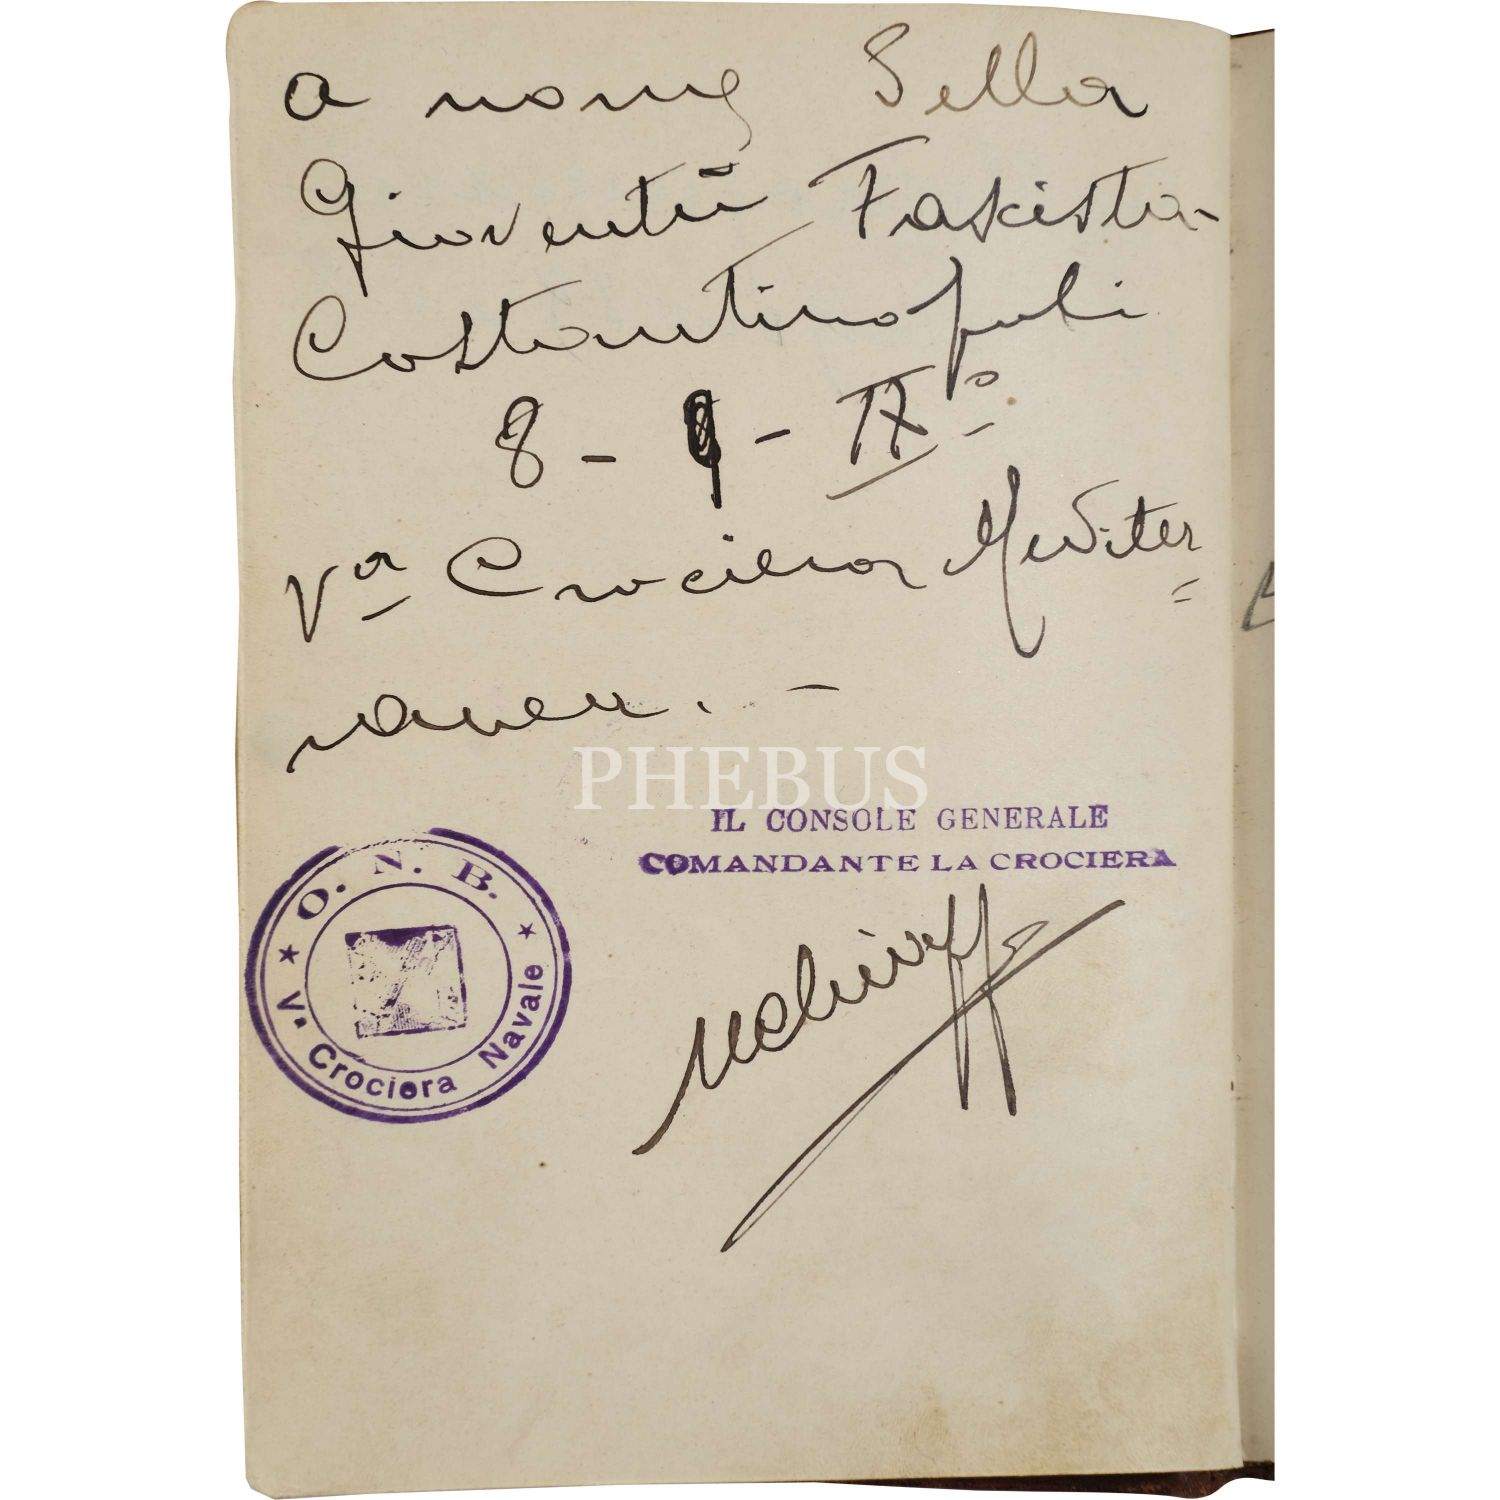 a nome della
Gioventù Fascista
Costantinopoli
8 - 9 - IX°
Va Crociera Mediter
=
ranea. -
PHEBUS
IL CONSOLE GENERALE
COMANDANTE LA CROCIERA
★ O. N. B. ★
V. Crociera Navale